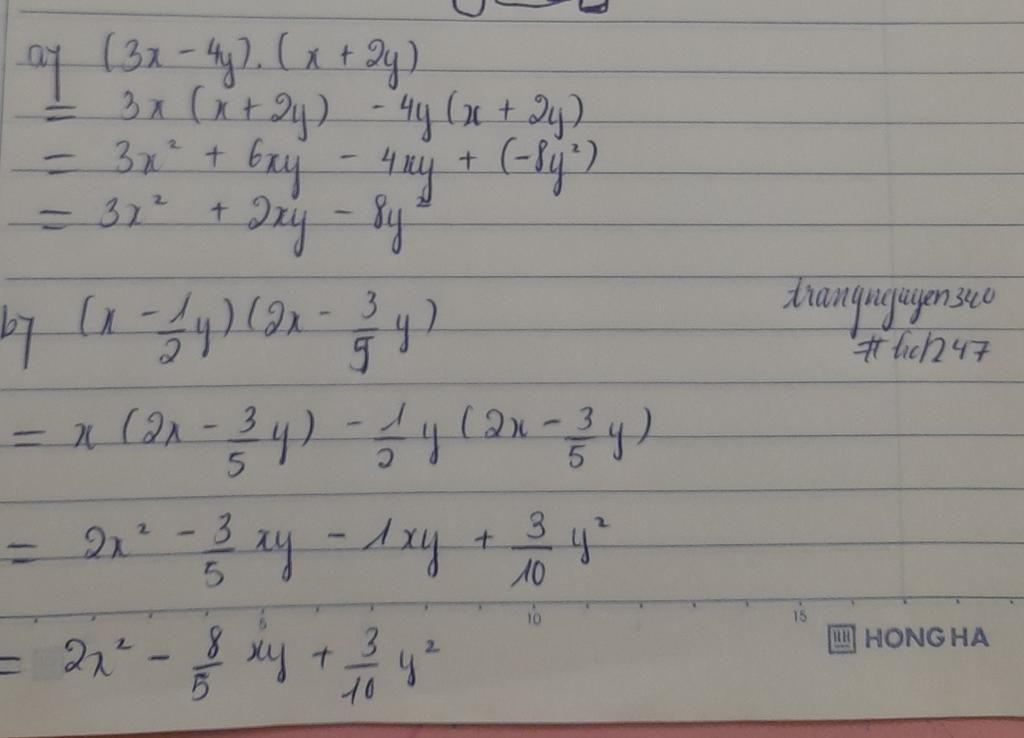 a) (3x - 4y).(x + 2y)
= 3x (x + 2y) - 4y (x + 2y)
= 3x² + 6xy - 4xy + (-8y²)
= 3x² + 2xy - 8y²
b) (x - 1/2 y)(2x - 3/5 y)
trangnguyen340
#hc1247
= x (2x - 3/5 y) - 1/2 y (2x - 3/5 y)
= 2x² - 3/5 xy - 1xy + 3/10 y²
5 10 15
HONG HA
= 2x² - 8/5 xy + 3/10 y²